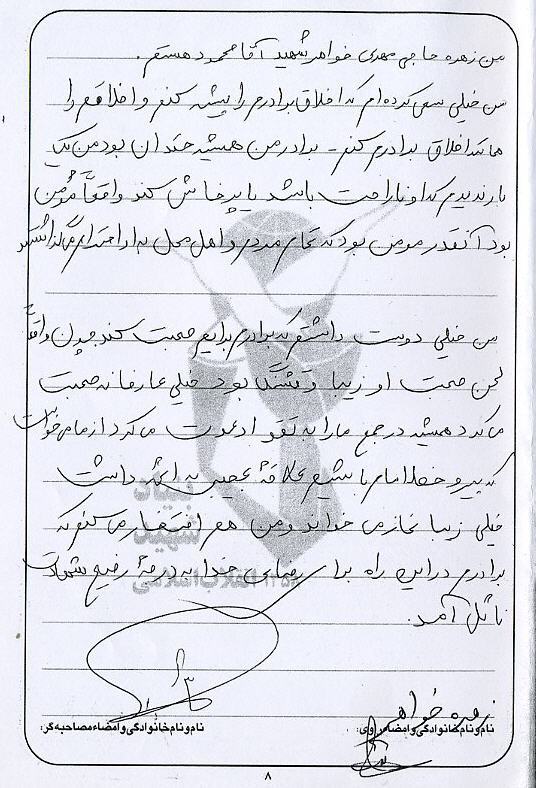 من زهره حاجی مهدی خواهر شهید آقا محمود هستم.
من خیلی سعی کرده‌ام که اخلاق برادرم را پیشه کنم و اخلاقم را
مانند اخلاق برادرم کنم - برادر من همیشه خندان بود من یک
بار ندیدم که او ناراحت باشد یا پرخاش کند واقعاً مؤمن
بود آنقدر مومن بود که تمام مردم و اهل محل به او احترام می‌گذاشتند
من خیلی دوست داشتم که برادرم برایم صحبت کند چون واقعاً
لحن صحبت او زیبا و قشنگ بود خیلی عارفانه صحبت
می‌کرد همیشه در جمع ما را به تقوا دعوت می‌کرد از ما می‌خواست
که پیرو خط امام باشیم علاقهٔ عجیبی به ائمه داشت
خیلی زیبا نماز می خواند و من هم افتخار می‌کنم که
برادرم در این راه برای رضای خدا به درجهٔ رفیع شهادت
نائل آمد.
بنیاد
شهید
انقلاب اسلامی
زهره خواهر
نام و نام خانوادگی و امضاء راوی:
نام و نام خانوادگی و امضاء مصاحبه گر:
۸